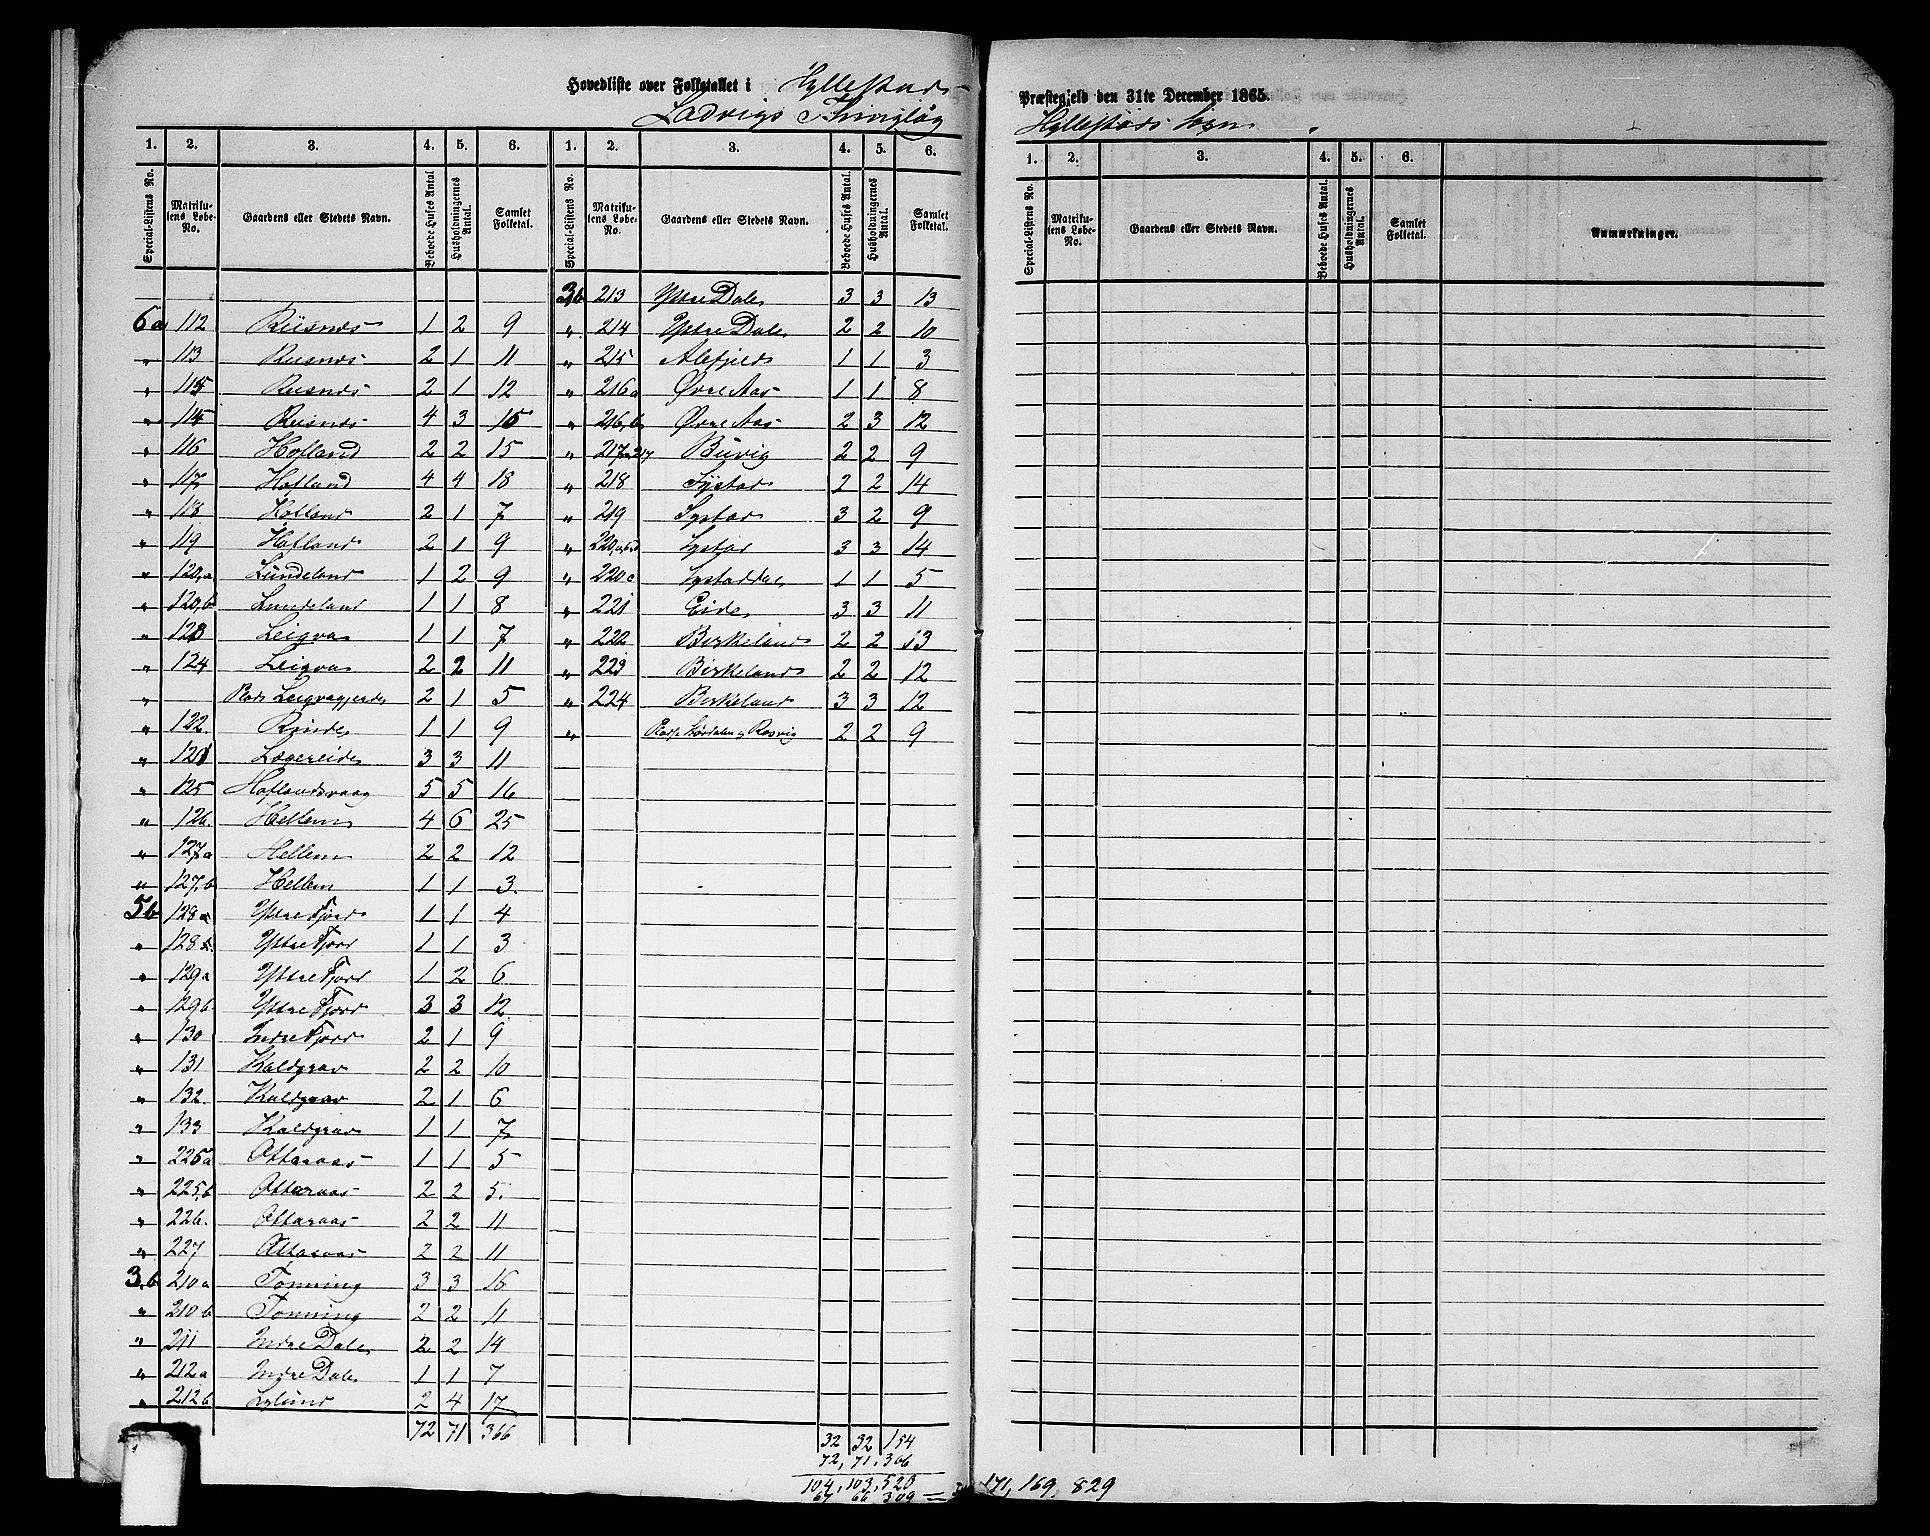 Hovedliste over Folketallet i Hyllestads
Ladvigs Thinglag
1. 2. 3. 4. 5. 6. 1. 2. 3. 4. 5. 6.
Special-Listens No. Matrikulens Løbe-No. Gaardens eller Stedets Navn. Beboede Huses Antal Husholdningernes Antal. Samlet Folketal. Special-Listens No. Matrikulens Løbe-No. Gaardens eller Stedets Navn. Beboede Huses Antal. Husholdningernes Antal. Samlet Folketal.
6a 112 Riisnes 1 2 9
" 113 Risnes 2 1 11
" 115 Risnes 2 1 12
" 114 Risnes 4 3 15
" 116 Hofland 2 2 15
" 117 Hofland 4 4 18
" 118 Hofland 2 1 7
" 119 Hofland 2 1 9
" 120,a Lundeland 1 2 9
" 120,b Lundeland 1 1 8
" 123 Leigva 1 1 7
" 124 Leigva 2 2 11
" Pads Leigvagjerde 2 1 5
" 122. Rinde 1 1 9
" 121 Lægereide 3 3 11
" 125 Hoflandsvaag 5 5 16
" 126. Hellem 4 6 25
" 127a Hellem 2 2 12
" 127,b Hellem 1 1 3.
5b 128a Ytre Fjord 1 1 4
" 128 b. Ytre Fjord 1 1 3
" 129a Ytre Fjord 1 2 6
" 129b. Ytre Fjord 3 3 12.
" 130 Indre Fjord 2 1 9
" 131 Kaldgrav 2 2 10
" 132. Kaldgrav 2 1 6
" 133 Kaldgrav 1 1 7
" 225a Otteraas 1 1 5
" 225,b Otteraas 2 2 5.
" 226. Otteraas 2 2 11
" 227 Otteraas 2 2 11
3,b 210a Tonning 3 3 16
" 210b Tonning 2 2 11
" 211 Indre Dale 2 2 14
" 212a Indre Dale 1 1 7
" 212b Lølund 2 4 17
72 71 366
3b 213 Ytre Dale 3 3 13
" 214 Ytre Dale 2 2 10
" 215 Alefjeld 1 1 3
" 216a Øvre Aas 1 1 8
" 216,b Øvre Aas 2 3 12
" 217 Buvig 2 2 9
" 218 Systad 2 2 14
" 219 Systad 3 2 9
" 220,a,b,d Systad 3 3 14
" 220c Systaddal 1 1 5
" 221 Eide 3 3 11
" 222 Birkeland 2 2 13
" 223 Birkeland 2 2 12
" 224 Birkeland 3 3 12
" Pads Rosvig 2 2 9
32 32 154
72, 71, 366
104, 103, 520
67 66 309 =
Præstegjeld den 31te December 1865.
Hyllestads Sogn
1. 2. 3. 4. 5. 6.
Special-Listens No. Matrikulens Løbe-No. Gaardens eller Stedets Navn. Beboede Huses Antal. Husholdningernes Antal. Samlet Folketal. Anmærkninger.
171, 169, 829